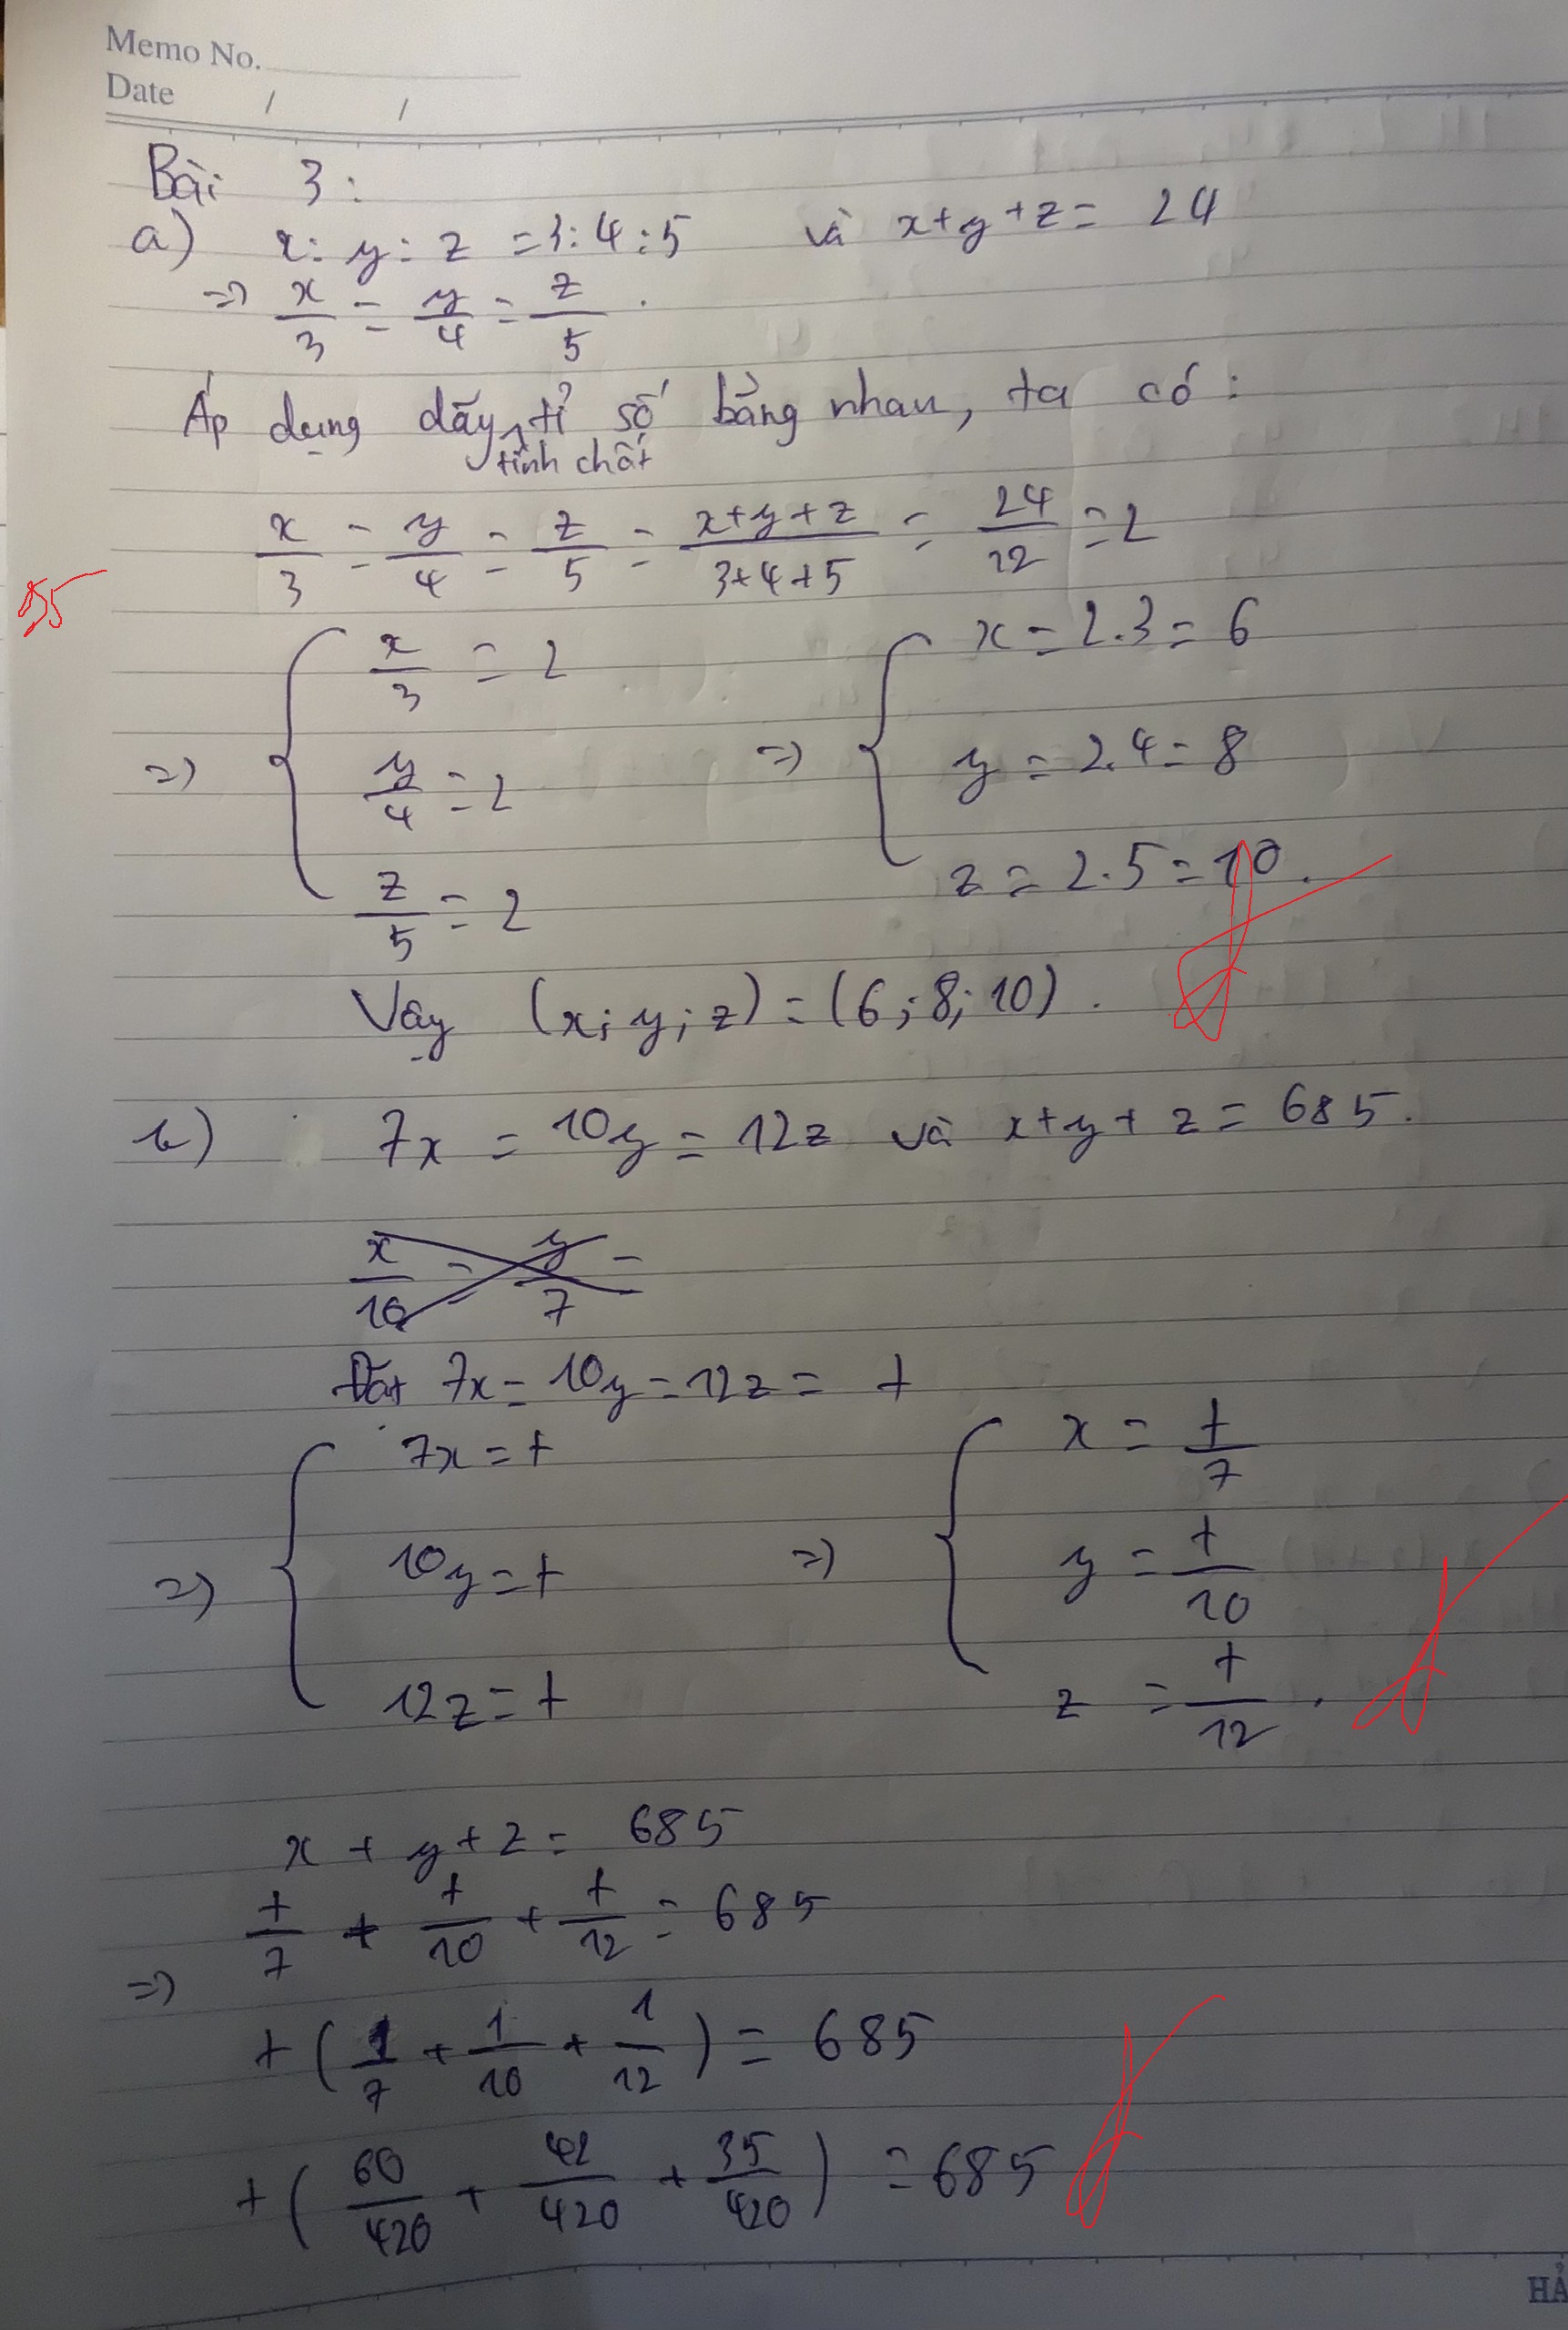 Memo No.
Date / /
Bài 3:
a) x: y: z = 3:4:5 và x+y+z= 24
=> x/3 = y/4 = z/5 .
Áp dụng dãy tỉ số bằng nhau, ta có:
tính chất
x/3 = y/4 = z/5 = (x+y+z)/(3+4+5) = 24/12 = 2
=> { x/3 = 2 => { x = 2.3 = 6
y/4 = 2 y = 2.4 = 8
z/5 = 2 z = 2.5 = 10.
Vậy (x; y; z) = (6; 8; 10).
b) 7x = 10y = 12z và x+y+z = 685.
x/10 = y/7 =
Đặt 7x = 10y = 12z = t
=> { 7x = t => { x = t/7
10y = t y = t/10
12z = t z = t/12 .
x + y + z = 685
=> t/7 + t/10 + t/12 = 685
t(1/7 + 1/10 + 1/12) = 685
t(60/420 + 42/420 + 35/420) = 685
HẢ